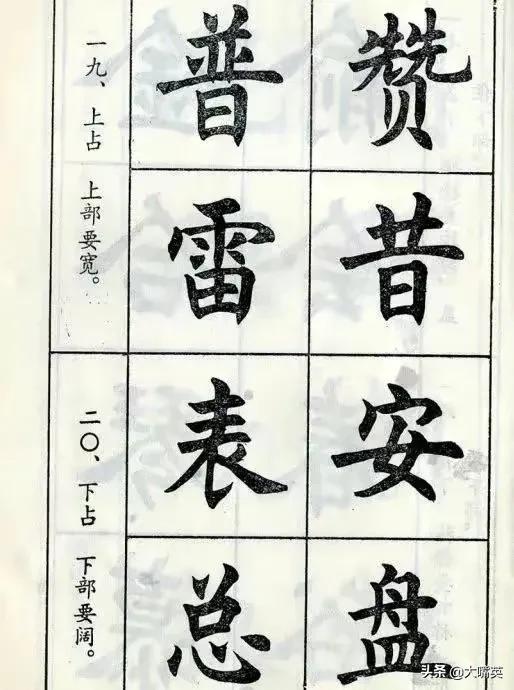 一九、上占 上部要宽。
普 赞
雷 昔
二〇、下占 下部要阔。
表 安
总 盘
头条 @大嘴英